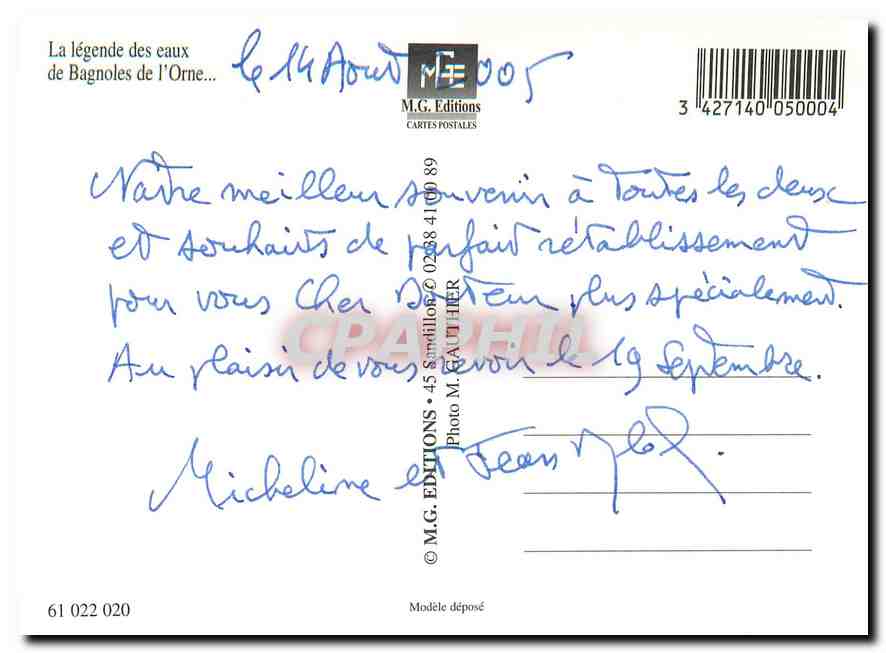 La légende des eaux
de Bagnoles de l'Orne...
le 14 Août 2005
MGE
M.G. Editions
CARTES POSTALES
3 427140 050004
Notre meilleur souvenir à toutes les deux
et souhaits de parfait rétablissement
pour vous Cher Docteur plus spécialement.
Au plaisir de vous revoir le 19 Septembre.
Micheline et Jean
© M.G. EDITIONS • 45 Sandillon ✆ 02 38 41 00 89
Photo M. GAUTHIER
CPAPHIL
61 022 020
Modèle déposé